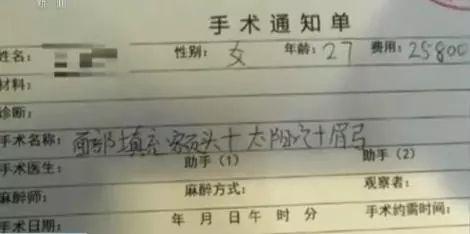 手术通知单
姓名： 性别：女 年龄：27 费用：25800
材料：
诊断：
手术名称：面部填充额头十太阳穴十眉弓
手术医生： 助手（1） 助手（2）
麻醉师： 麻醉方式： 观察者：
手术日期： 年 月 日 午 时 分 手术约需时间：